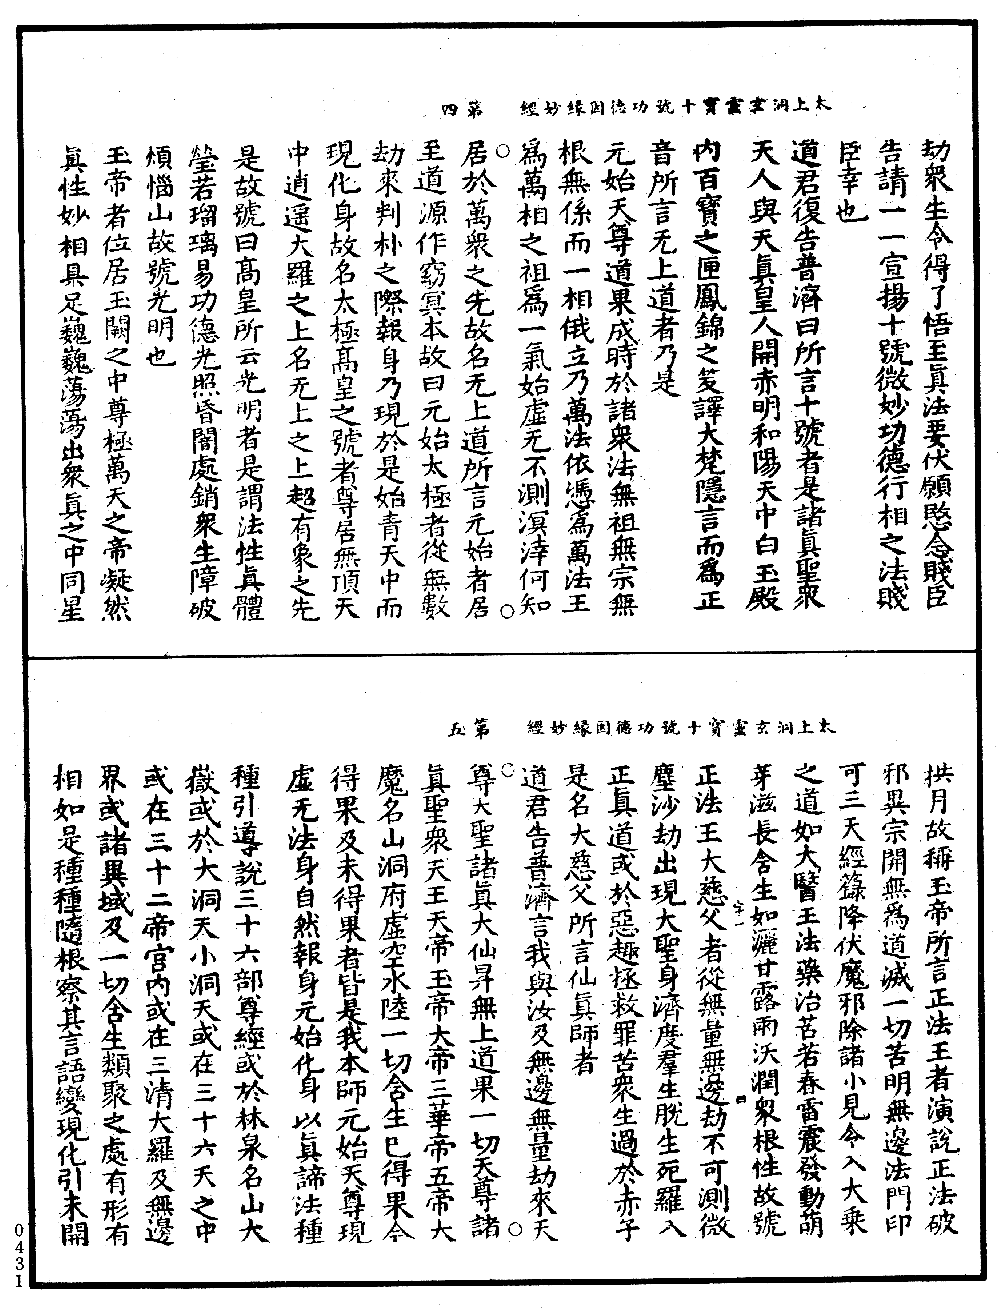 太上洞玄靈寶十號功德因緣妙經 第四
劫衆生令得了悟至眞法要伏願愍念賤臣
告請一一宣揚十號微妙功德行相之法賤
臣幸也
道君復告普濟曰所言十號者是諸眞聖衆
天人與天眞皇人開赤明和陽天中白玉殿
内百寶之匣鳳錦之笈譯大梵隱言而爲正
音所言无上道者乃是
元始天尊道果成時於諸衆法無祖無宗無
根無係而一相俄立乃萬法依憑爲萬法王
爲萬相之祖爲一氣始虛无不測溟涬何知
居於萬衆之先故名无上道所言元始者居
至道源作窈冥本故曰元始太極者從無數
劫來判朴之際報身乃現於是始青天中而
現化身故名太極髙皇之號者尊居無頂天
中逍遥大羅之上名无上之上超有象之先
是故號曰髙皇所云光明者是謂法性眞體
瑩若瑠璃易功德光照昏闇處銷衆生障破
煩惱山故號光明也
玉帝者位居玉闕之中尊極萬天之帝凝然
眞性妙相具足巍巍蕩蕩出衆眞之中同星
太上洞玄靈寶十號功德因緣妙經 第五
拱月故稱玉帝所言正法王者演說正法破
邪異宗開無爲道滅一切苦明無邊法門印
可三天經籙降伏魔邪除諸小見令入大乗
之道如大醫王法藥治苦若春雷震發動萌
芽滋長含生如灑甘露雨沃潤衆根性故號
正法王大慈父者從無量無邊劫不可測微
塵沙劫出現大聖身濟度羣生脫生死羅入
正眞道或於惡趣拯救罪苦衆生過於赤子
是名大慈父所言仙眞師者
道君告普濟言我與汝及無邊無量劫來天
尊大聖諸眞大仙昇無上道果一切天尊諸
眞聖衆天王天帝玉帝大帝三華帝五帝大
魔名山洞府虛空水陸一切含生已得果令
得果及未得果者皆是我本師元始天尊現
虛无法身自然報身元始化身以眞諦法種
種引導說三十六部尊經或於林泉名山大
嶽或於大洞天小洞天或在三十六天之中
或在三十二帝宮内或在三清大羅及無邊
界或諸異域及一切含生類聚之處有形有
相如是種種隨根察其言語變現化引未開
0431